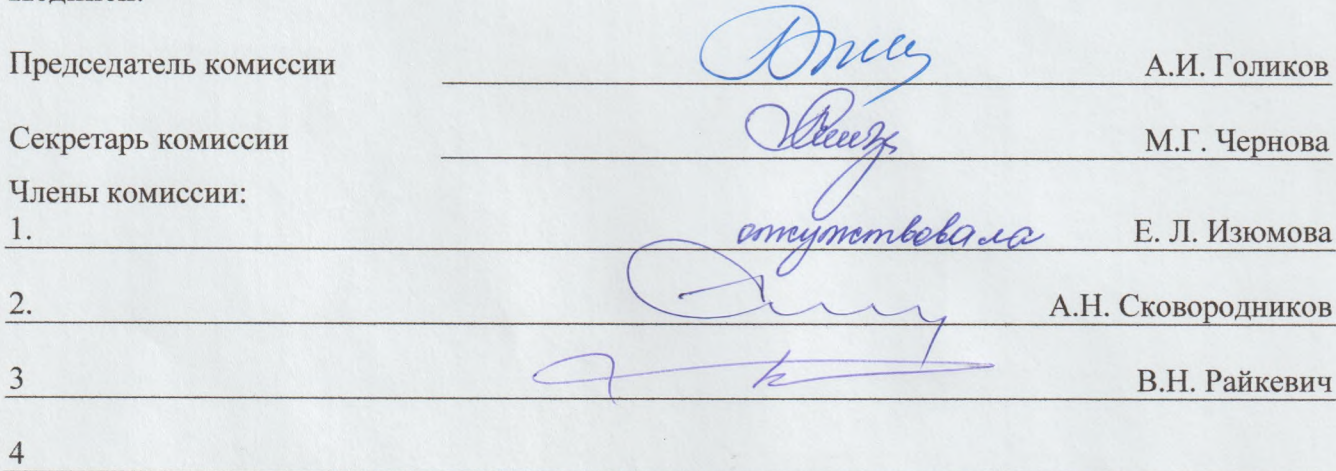 Председатель комиссии А.И. Голиков
Секретарь комиссии М.Г. Чернова
Члены комиссии:
1. отсутствовала Е. Л. Изюмова
2. А.Н. Сковородников
3 В.Н. Райкевич
4